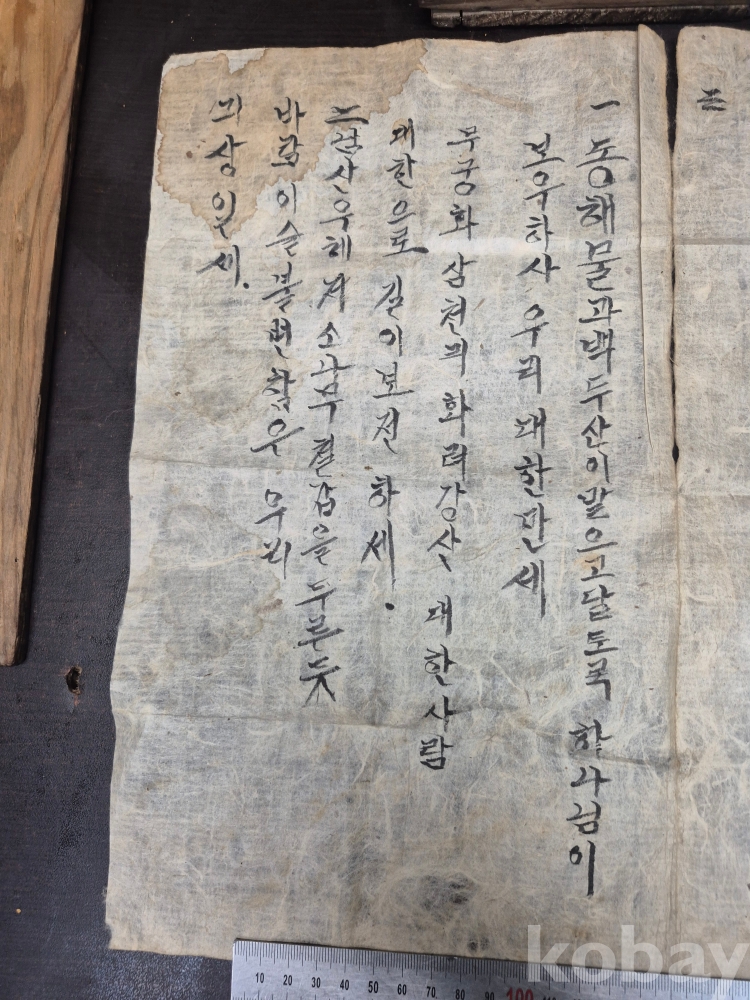 三
一 동해물과백두산이말으고달토록 하나님이
보우하사 우리 대한만세
무궁화 삼천리 화려강산 대한사람
대한으로 길이보전 하세.
二남산우헤 저소나무 철갑을 두른듯
바람이슬불변함은 우리
긔상일세.
10 20 30 40 50 60 70 80 90 100
kobay